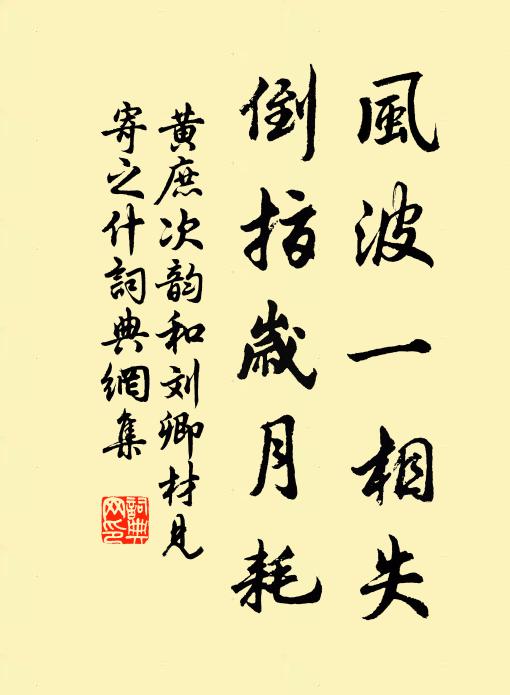 風波一相失
倒指歲月耗
黄庶次韵和刘卿材見
寄之什詞典網集
詞典网印